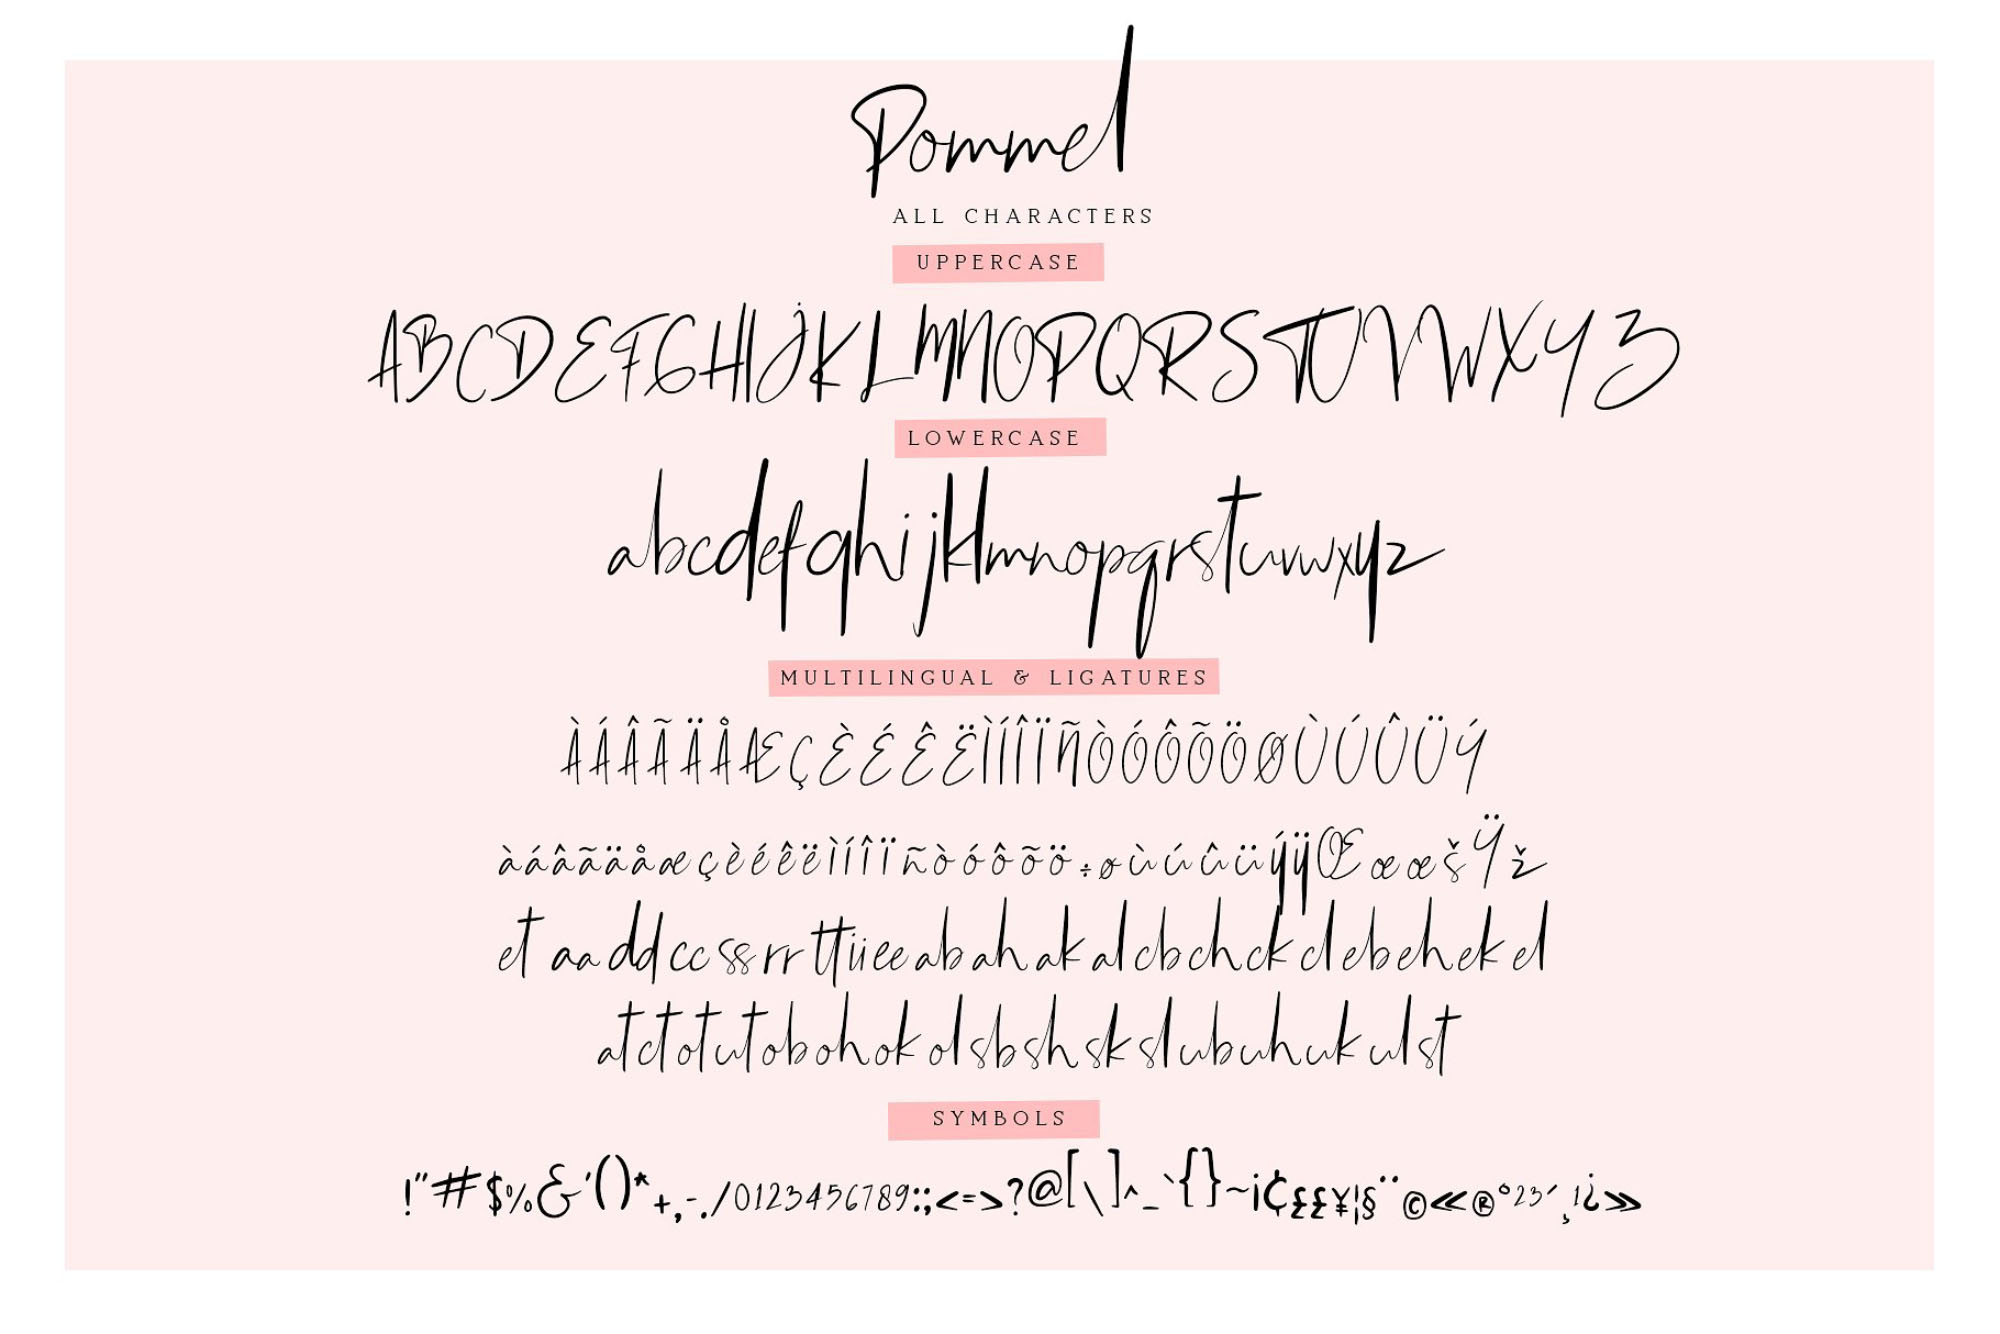 Pommel
ALL CHARACTERS
UPPERCASE
ABCDEFGHIJKLMNOPQRSTUVWXYZ
LOWERCASE
abcdefghijklmnopqrstuvwxyz
MULTILINGUAL & LIGATURES
ÀÁÂÃÄÅÆÇÈÉÊËÌÍÎÏÑÒÓÔÕÖØÙÚÛÜÝ
àáâãäåæçèéêëìíîïñòóôõö÷øùúûüýÿŒœœšŸž
et aa dd cc ss rr tt ii ee ab ah ak al cb ch ck cl eb eh ek el
at ct ot ut ob oh ok ol sb sh sk sl ub uh uk ul st
SYMBOLS
!"#$%&'()*+,-./0123456789:;<=>?@[\]^_`{}~¡¢££¥¦§¨©«®°23´¸1¿»